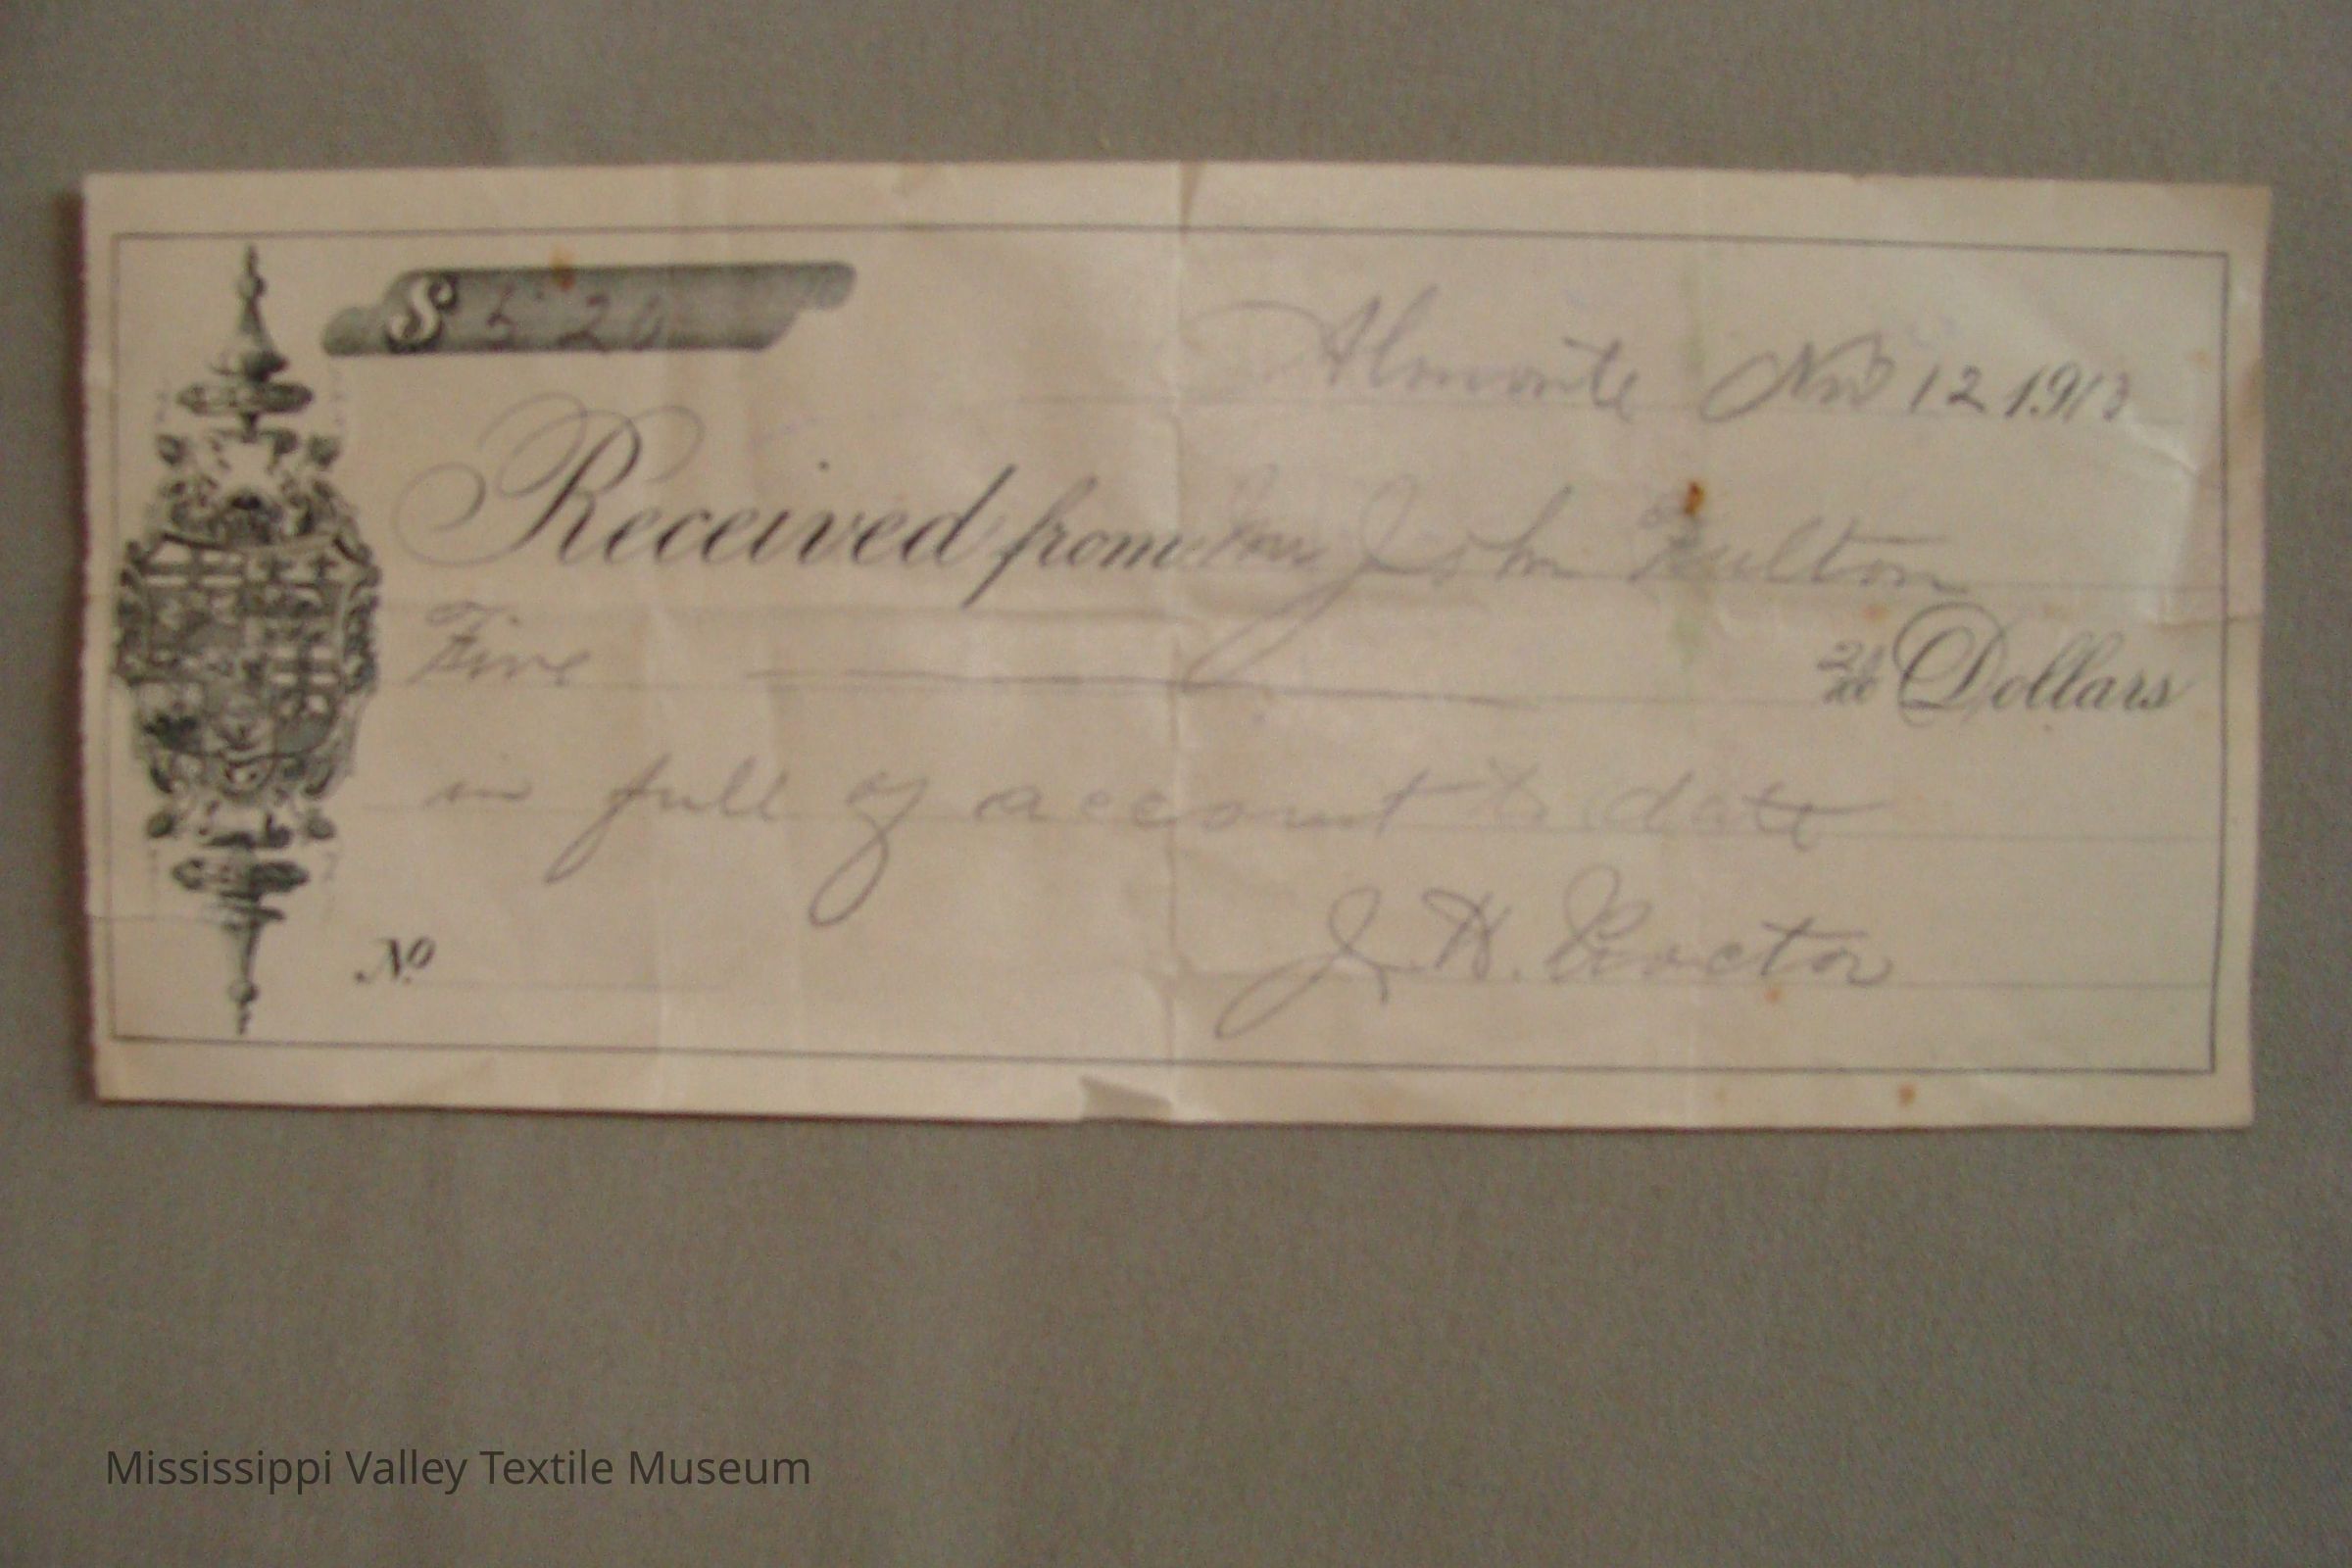 $ 5.20
Almonte Nov 12 1913
Received from Mr John Fulton
Five 20/100 Dollars
in full of account to date
No. J. H. Proctor
Mississippi Valley Textile Museum